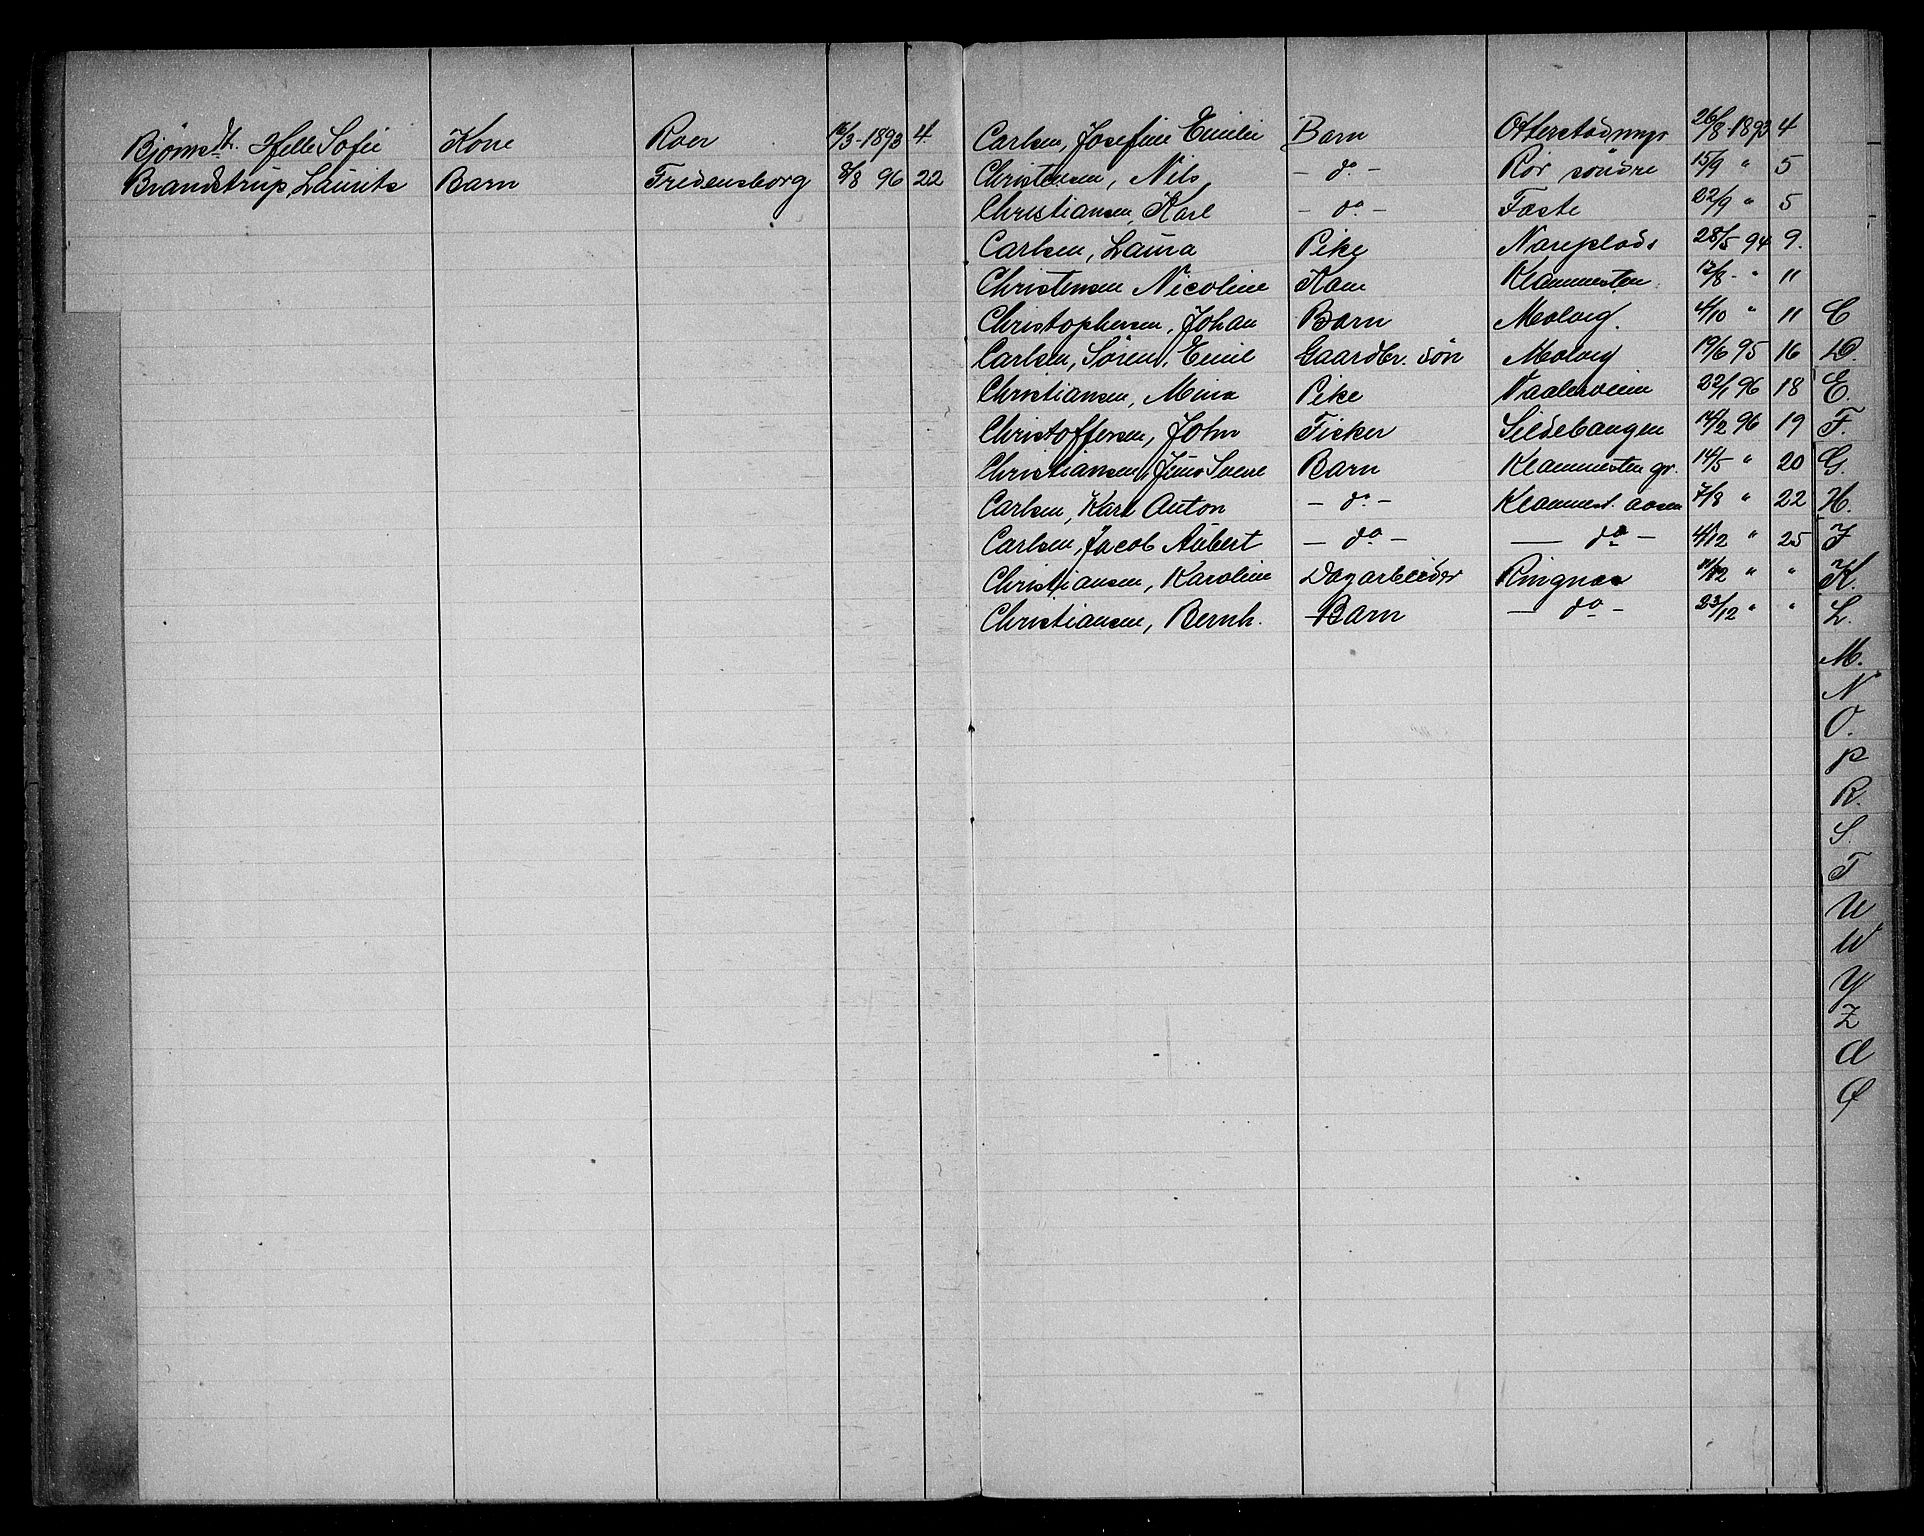 Bjørnsdt. Helle Sofie Kone Roer 16/3-1893 4.
Brandstrup, Laurits Barn Fredensborg 8/8 96 22
Carlsen, Josefine Emilie Barn 26/8-1893 4
Christensen, Nils - do - Rör söndre 15/9 " 5
Christiansen, Karl - do - Faste 22/9 " 5
Carlsen, Laura Pike 28/5 94 9.
Christensen Nicoline Kone Klammesten 12/8- " 11
Christophersen, Johan Barn Molvig. 4/10 " 11
Carlsen, Søren, Emil Gaardbr. sön Molvig 19/6 95 16
Christiansen, Mina Pike Vaalerveien 22/1 96 18
Christoffersen, John Fisker Sildebaugen 14/2 96 19
Christiansen, Barn Klammesten gr. 14/5 " 20
Carlsen, Karl Anton - do - Klammest. aasen 7/8 " 22
Carlsen, Jacob Aubert - do - - do - 4/12 " 25
Christiansen, Karoline Dagarbeider Ringnæs 11/12 " "
Christiansen, Bernh. Barn - do - 23/12 " "
C
D.
E.
F.
G.
H.
J
K.
L.
M.
N
O.
P
R.
S.
T
U
W
Y
Z
Æ
Ø